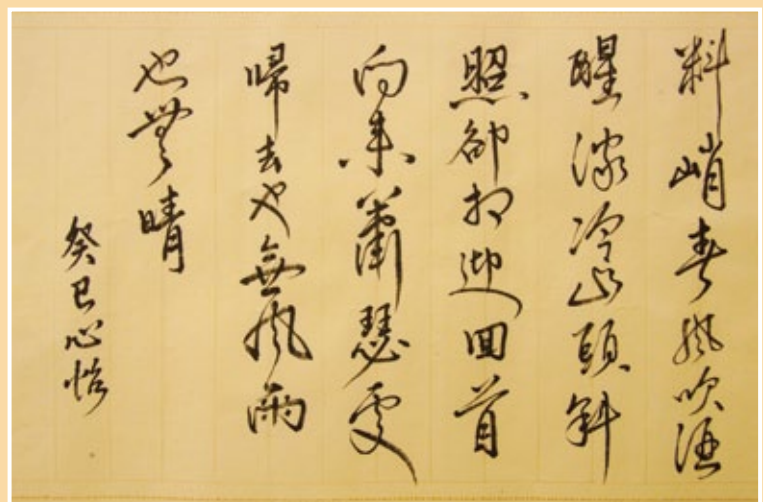 料峭春風吹酒
醒微冷山頭斜
照卻相迎回首
向來蕭瑟處
歸去也無風雨
也無晴
癸巳心怡